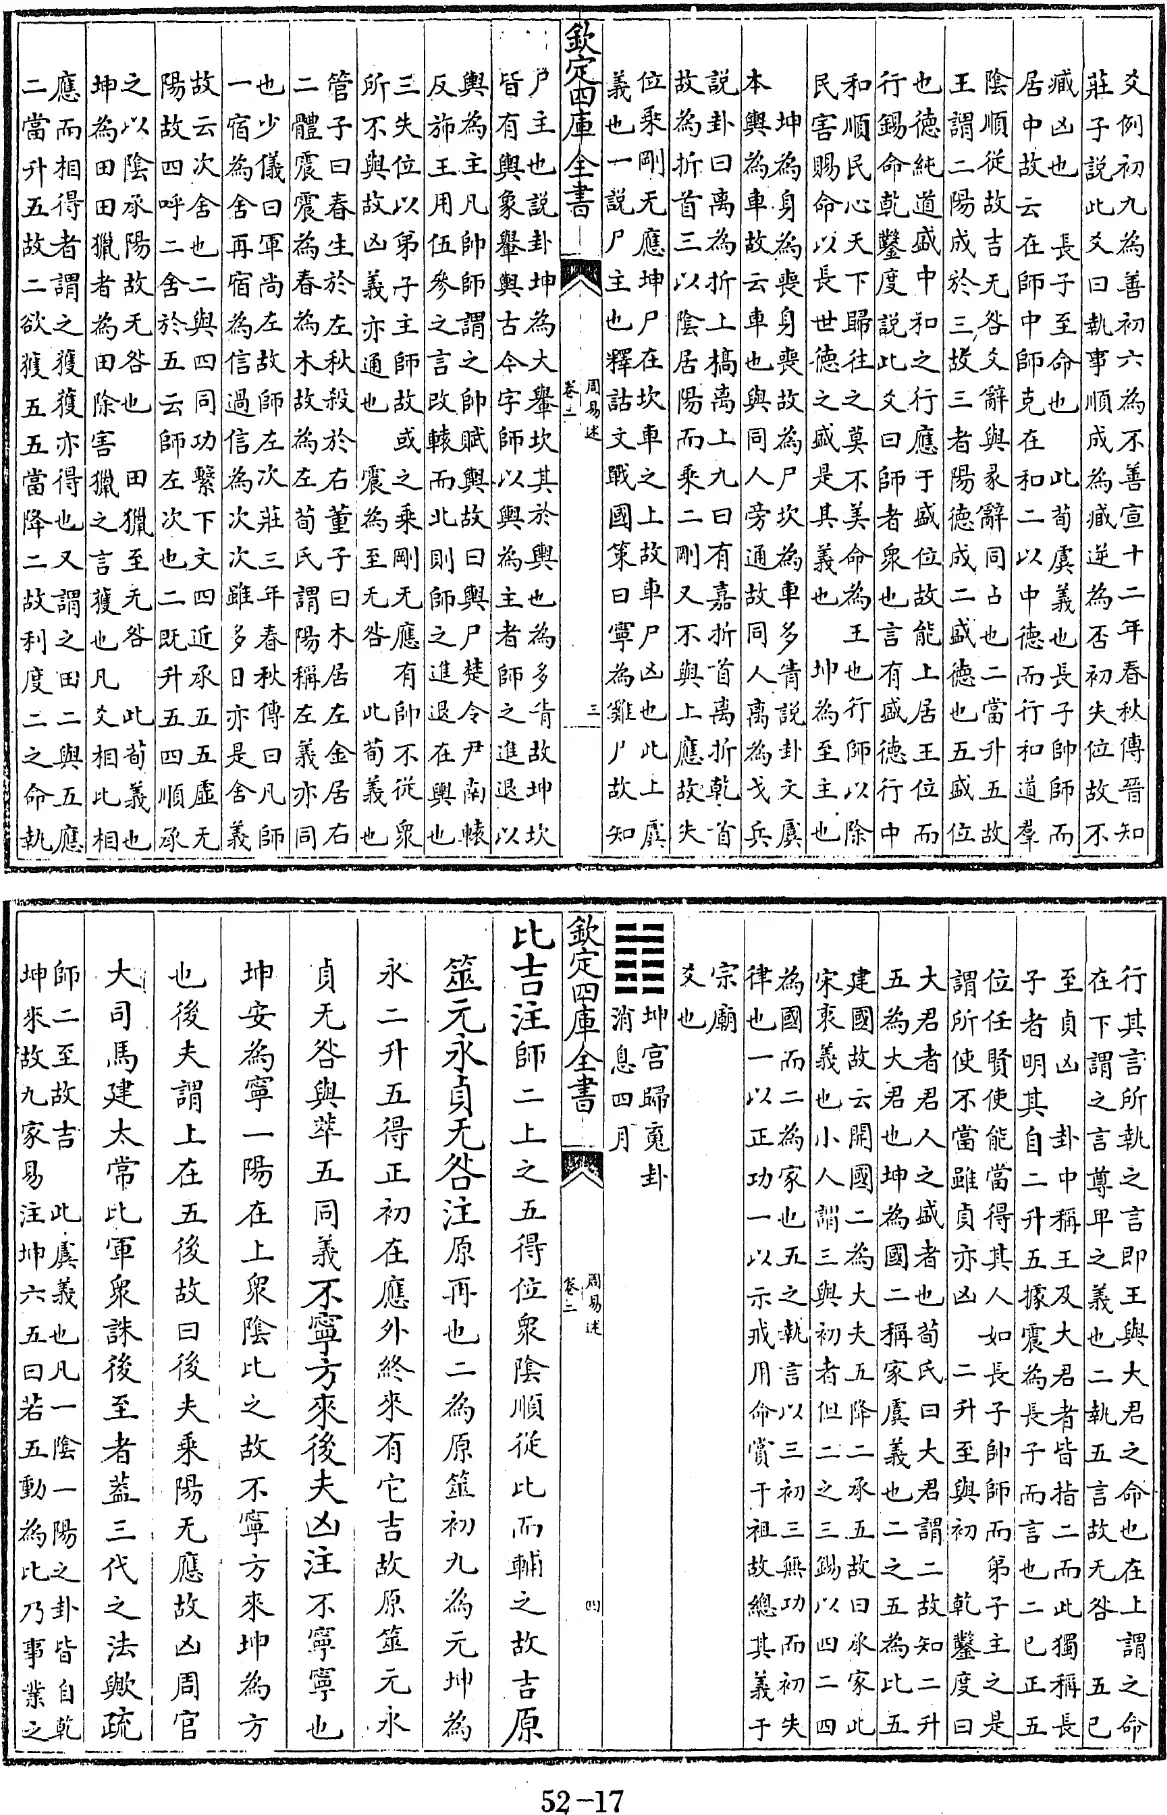 爻例初九為善初六為不善宣十二年春秋傳晉知
莊子說此爻曰執事順成為臧逆為否初失位故不
臧凶也　長子至命也　此荀虞義也長子帥師而
居中故云在師中師克在和二以中德而行和道羣
陰順從故吉无咎爻辭與彖辭同占也二當升五故
王謂二陽成於三故三者陽德成二盛德也五盛位
也德純道盛中和之行應于盛位故能上居王位而
行錫命乾鑿度說此爻曰師者衆也言有盛德行中
和順民心天下歸往之莫不美命為王也行師以除
民害賜命以長世德之盛是其義也　坤為至主也
坤為身為喪身喪故為尸坎為車多眚說卦文虞
本輿為車故云車也與同人旁通故同人離為戈兵
說卦曰離為折上槁離上九曰有嘉折首離折乾首
故為折首三以陰居陽而乘二剛又不與上應故失
位乘剛无應坤尸在坎車之上故車尸凶也此上虞
義也一說尸主也釋詁文戰國策曰寧為雞尸故知
欽定四庫全書
周易述
卷二
三
尸主也說卦坤為大轝坎其於輿也為多眚故坤坎
皆有輿象轝輿古今字師以輿為主者師之進退以
輿為主凡帥師謂之帥賦輿故曰輿尸楚令尹南轅
反斾王用伍參之言改轅而北則師之進退在輿也
三失位以弟子主師故或之乘剛无應有帥不從衆
所不與故凶義亦通也　震為至无咎　此荀義也
管子曰春生於左秋殺於右董子曰木居左金居右
二體震震為春為木故為左荀氏謂陽稱左義亦同
也少儀曰軍尚左故師左次莊三年春秋傳曰凡師
一宿為舍再宿為信過信為次次雖多日亦是舍義
故云次舍也二與四同功繫下文四近承五五虛无
陽故四呼二舍於五云師左次也二既升五四順承
之以陰承陽故无咎也　田獵至无咎　此荀義也
坤為田田獵者為田除害獵之言獲也凡爻相比相
應而相得者謂之獲獲亦得也又謂之田二與五應
二當升五故二欲獲五五當降二故利度二之命執
行其言所執之言即王與大君之命也在上謂之命
在下謂之言尊卑之義也二執五言故无咎　五已
至貞凶　卦中稱王及大君者皆指二而此獨稱長
子者明其自二升五據震為長子而言也二已正五
位任賢使能當得其人如長子帥師而弟子主之是
謂所使不當雖貞亦凶　二升至與初　乾鑿度曰
大君者君人之盛者也荀氏曰大君謂二故知二升
五為大君也坤為國二稱家虞義也二之五為比五
建國故云開國二為大夫五降二承五故曰承家此
宋衷義也小人謂三與初者但二之三錫以四二四
為國而二為家也五之執言以三初三無功而初失
律也一以正功一以示戒用命賞于祖故總其義于
宗廟
爻也
坤宮歸䰟卦
消息四月
欽定四庫全書
周易述
卷二
四
比吉注師二上之五得位衆陰順從比而輔之故吉原
筮元永貞无咎注原再也二為原筮初九為元坤為
永二升五得正初在應外終來有它吉故原筮元永
貞无咎與萃五同義不寧方來後夫凶注不寧寧也
坤安為寧一陽在上衆陰比之故不寧方來坤為方
也後夫謂上在五後故曰後夫乘陽无應故凶周官
大司馬建太常比軍衆誅後至者蓋三代之法歟疏
師二至故吉　此虞義也凡一陰一陽之卦皆自乾
坤來故九家易注坤六五曰若五動為比乃事業之
52-17